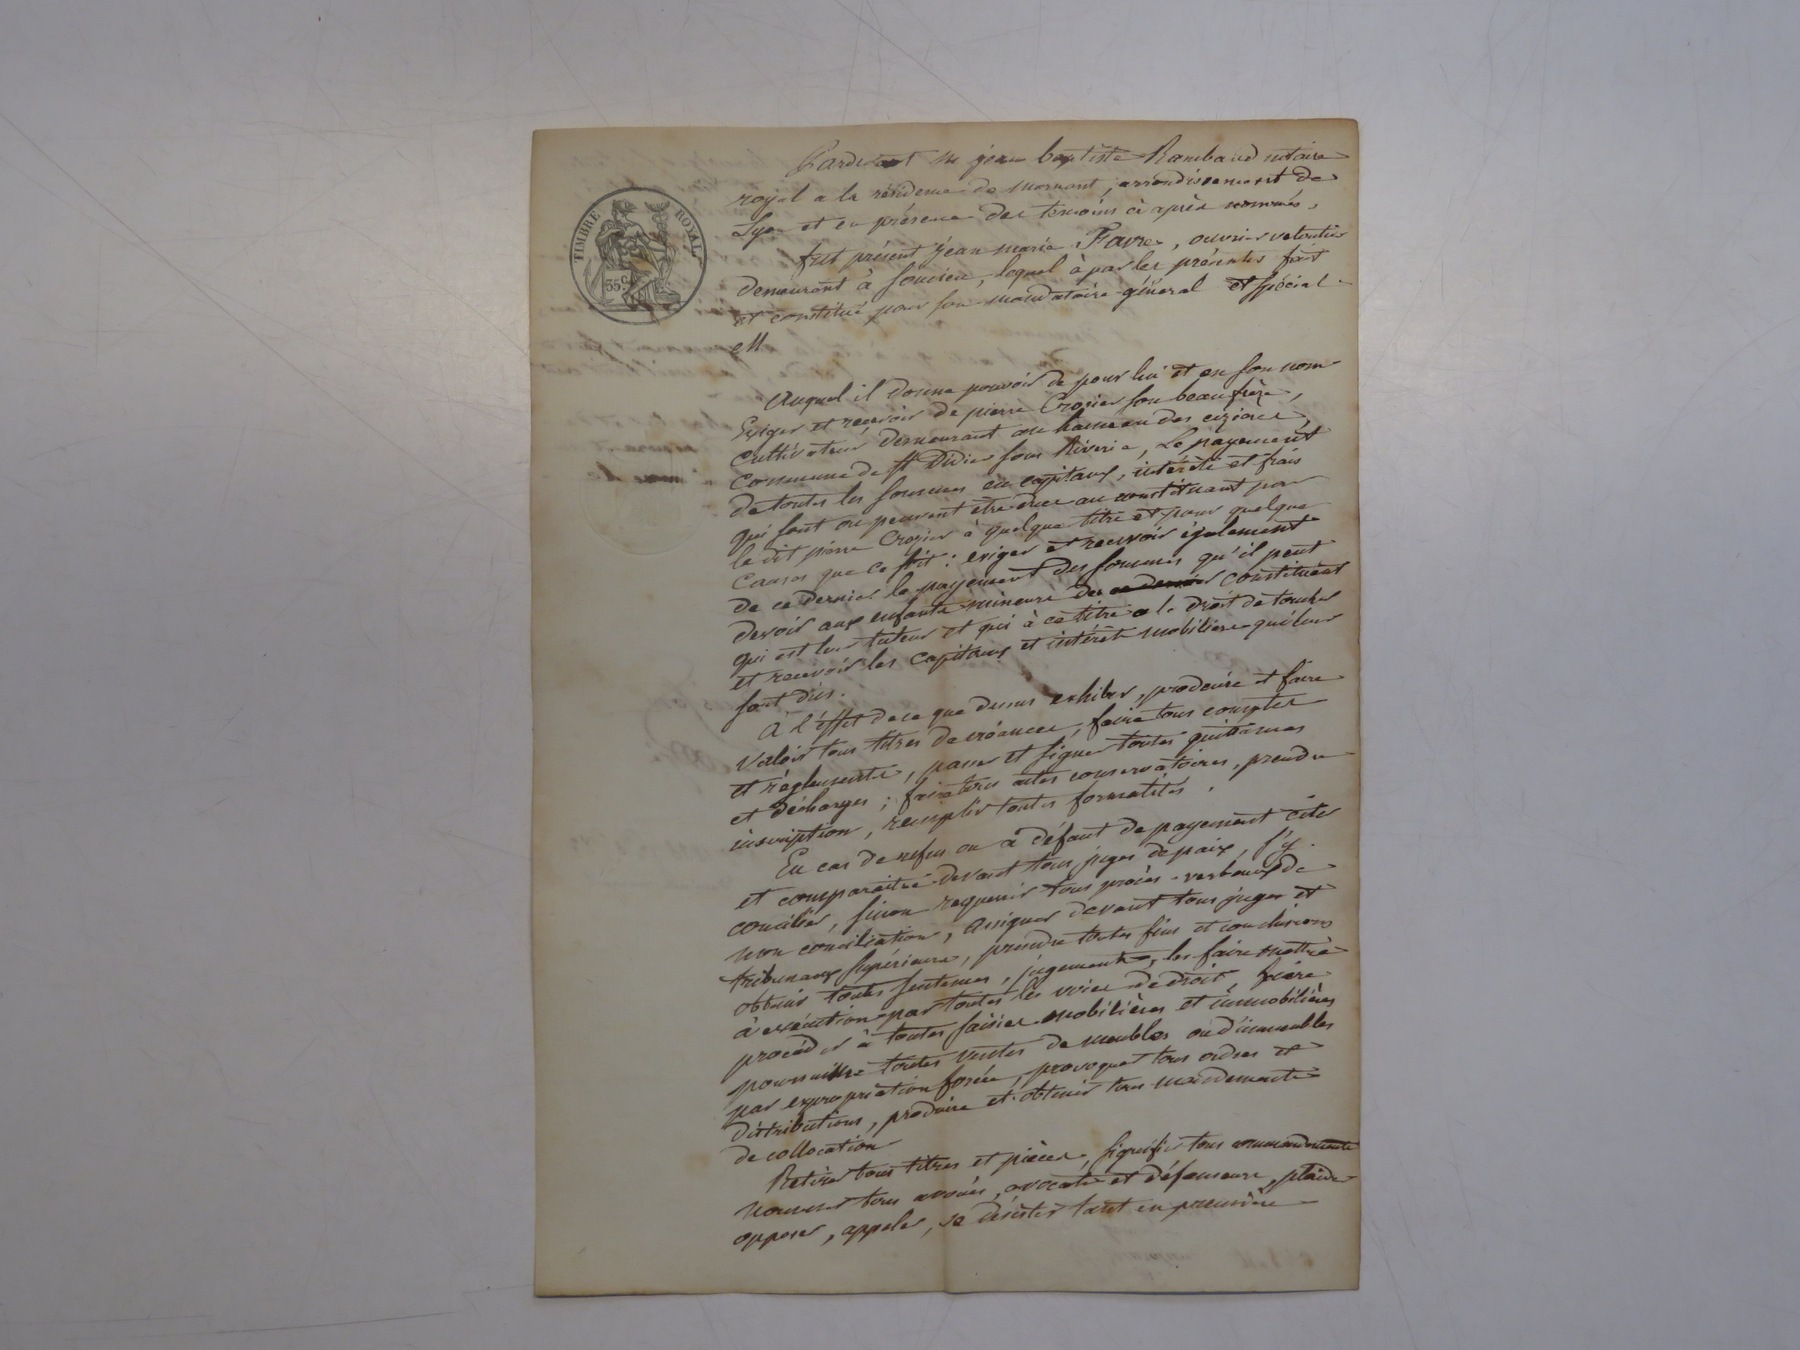 TIMBRE ROYAL
35 c
Pardevant me jean baptiste Rambaud notaire
royal a la résidence de mornant, arrondissement de
Lyon et en présence des temoins ci après nommés,
fut présent Jean marie Favre, ouvrier veloutier
demeurant à Soucieu, lequel à par les présentes fait
et constitué pour son mandataire général et spécial
M
Auquel il donne pouvoir de pour lui et en son nom
Exiger et recevoir de pierre Crozier son beau frère,
cultivateur demeurant au hameau des
Commune de St Didier sous Riverie, Le payement
de toutes les sommes en capitaux, intérêts et frais
qui sont ou peuvent être dues au constituant par
le dit pierre Crozier à quelque titre et pour quelque
Causes que ce soit : exiger et recevoir également
de ce dernier le payement des sommes qu'il peut
devoir aux enfants mineurs du constituant
qui est leur tuteur et qui à ce titre a le droit de toucher
et recevoir les capitaux et intérêts mobiliers qui leur
sont dus.
A l'effet de ce que dessus exhiber, produire et faire
valoir tous titres de créances, faire tous comptes
et réglements, passer et signer toutes quittances
et décharges ; faire tous actes conservatoires, prendre
inscription, remplir toutes formalités.
En cas de refus ou à défaut de payement citer
et comparaitre devant tous juges de paix, s'y
concilier, sinon requerir tous procès-verbaux de
non conciliation, assigner devant tous juges et
tribunaux supérieurs, prendre toutes fins et conclusions
obtenir toutes sentences, jugements, les faire mettre
à exécution par toutes les voies de droit, faire
procéder à toutes saisies mobilières et immobilières
poursuivre toutes ventes de meubles ou d'immeubles
par expropriation forcée, provoquer tous ordres et
distributions, produire et obtenir tous mandements
de collocation
Retirer tous titres et pièces, signifier tous commandements
nommer tous avoués, avocats et défenseurs, plaider
opposer, appeler, se désister tant en première